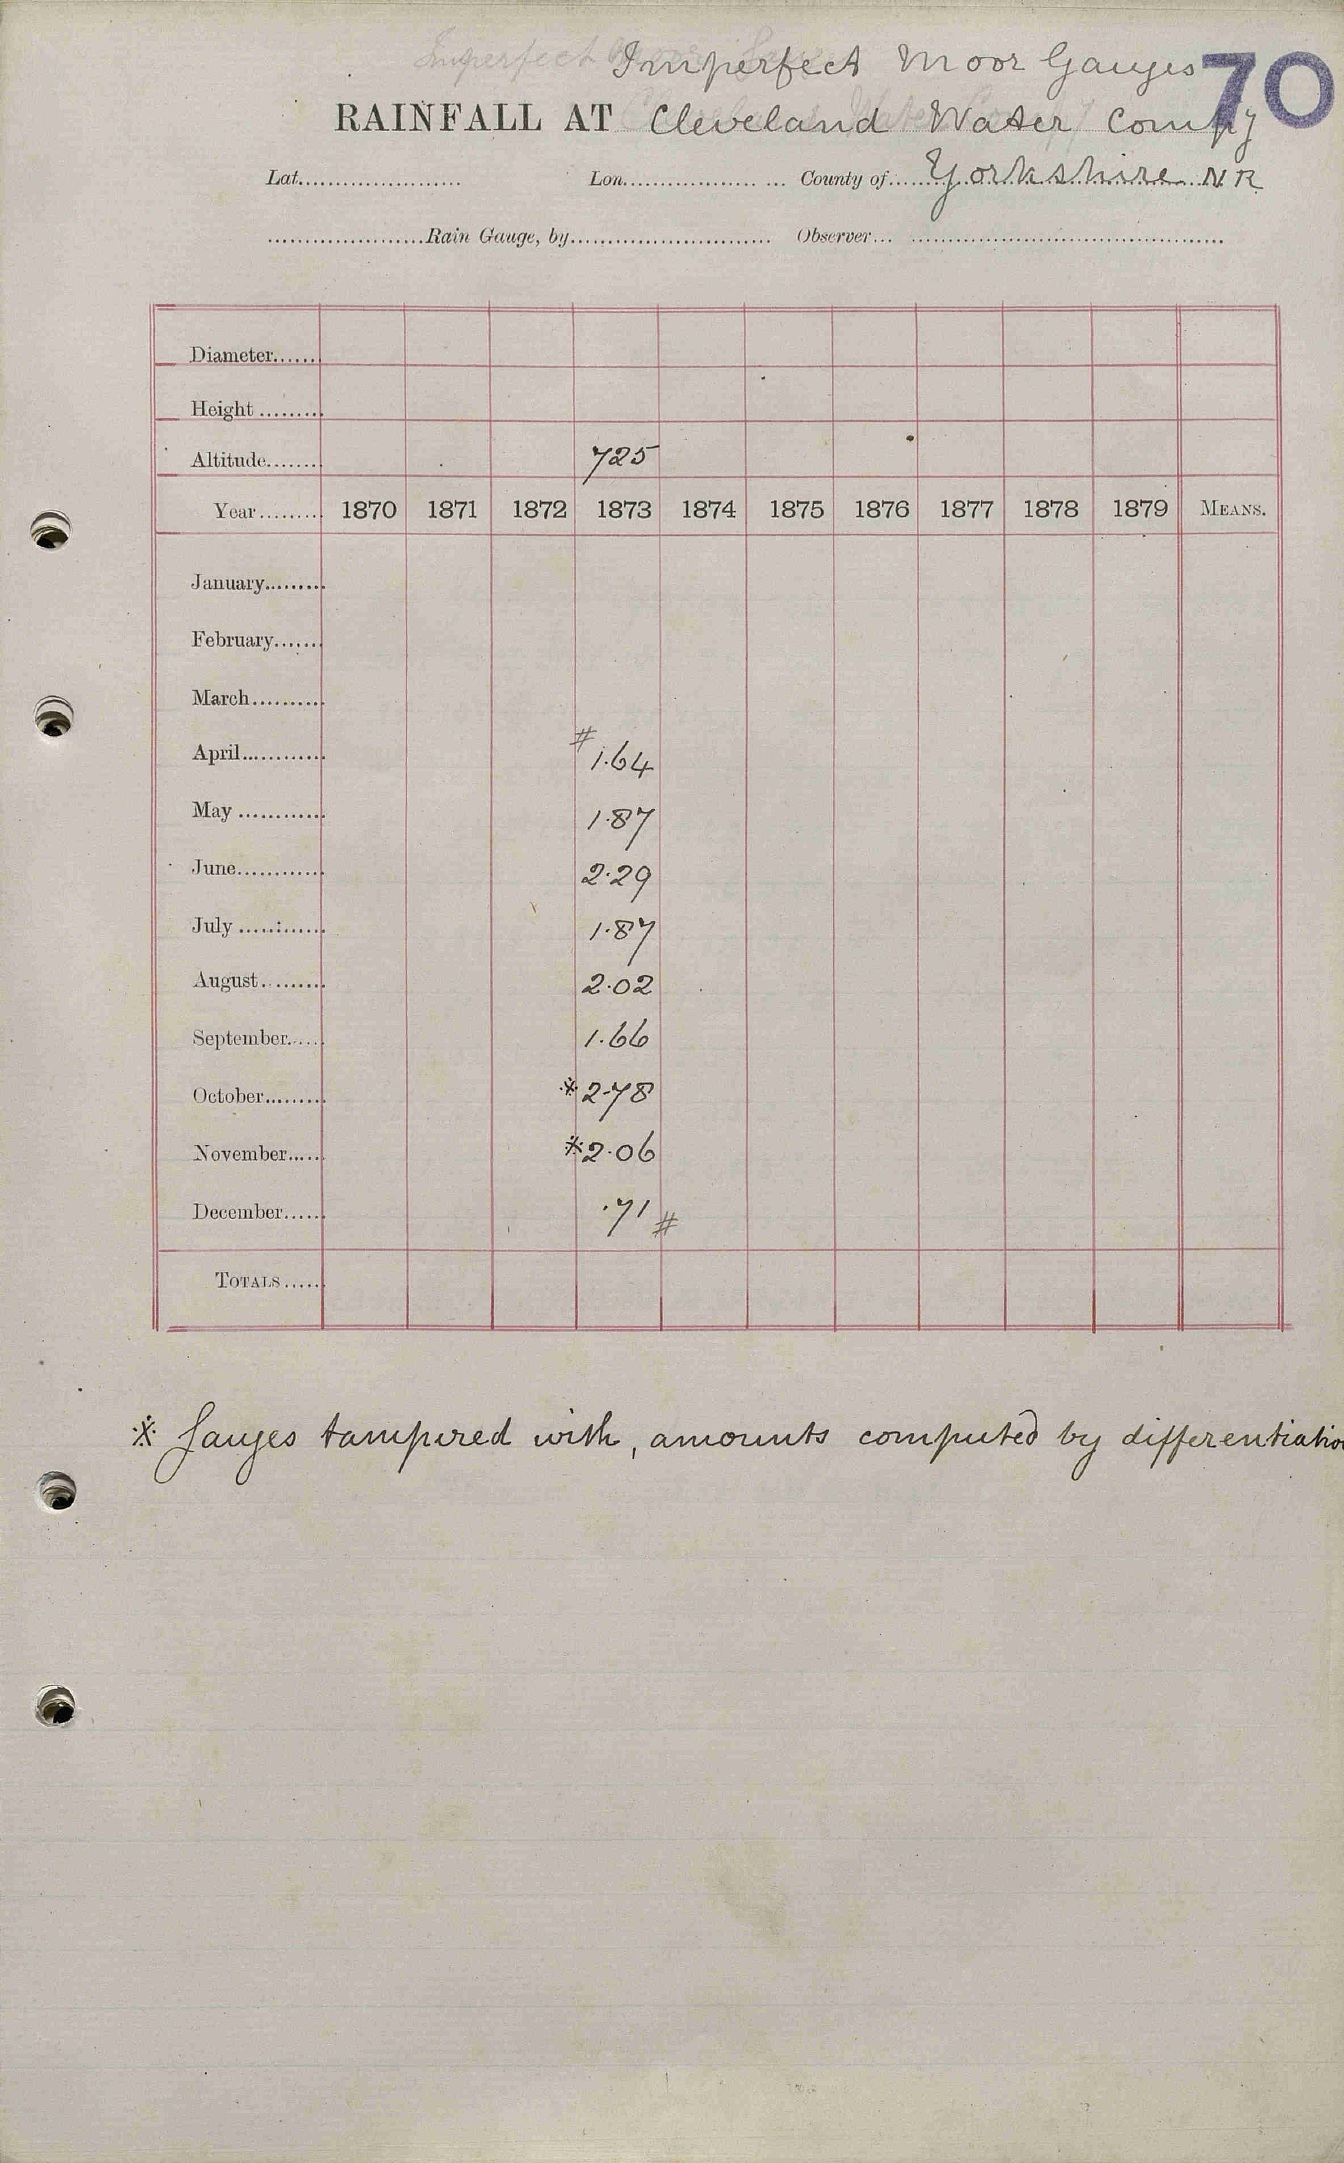 Imperfect Moor Gauges 70
RAINFALL AT Cleveland Water Compy
Lat. Lon. County of Yorkshire NR
Rain Gauge, by Observer
Diameter
Height
Altitude 725
Year 1870 1871 1872 1873 1874 1875 1876 1877 1878 1879 MEANS.
January
February
March
April # 1.64
May 1.87
June 2.29
July 1.87
August 2.02
September 1.66
October ※ 2.78
November ※ 2.06
December .71 #
TOTALS
※ Gauges tampered with, amounts computed by differentiation